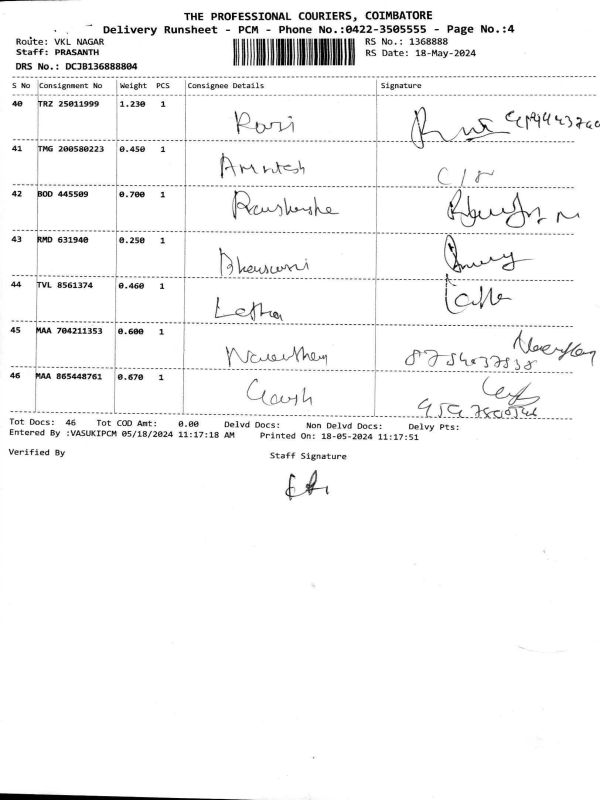 THE PROFESSIONAL COURIERS, COIMBATORE
Delivery Runsheet - PCM - Phone No.:0422-3505555 - Page No.:4
Route: VKL NAGAR RS No.: 1368888
Staff: PRASANTH RS Date: 18-May-2024
DRS No.: DCJB136888804
S No Consignment No Weight PCS Consignee Details Signature
40 TRZ 25011999 1.230 1 Ravi
41 TMG 200580223 0.450 1
42 BOD 445509 0.700 1
43 RMD 631940 0.250 1
44 TVL 8561374 0.460 1 Letha
45 MAA 704211353 0.600 1
46 MAA 865448761 0.670 1
Tot Docs: 46 Tot COD Amt: 0.00 Delvd Docs: Non Delvd Docs: Delvy Pts:
Entered By :VASUKIPCM 05/18/2024 11:17:18 AM Printed On: 18-05-2024 11:17:51
Verified By Staff Signature